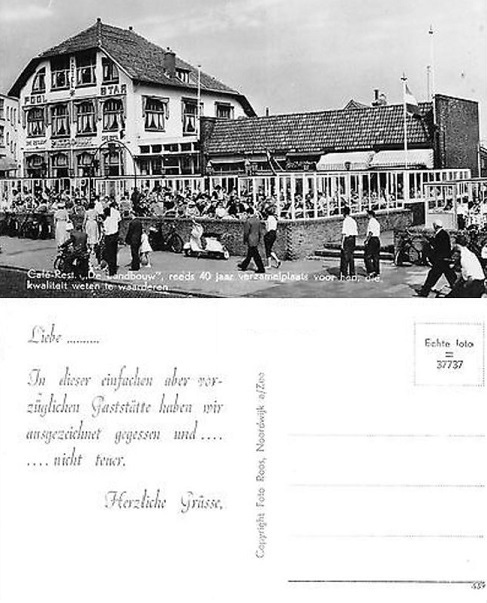 POOL STAR
Café-Rest. „De Landbouw”, reeds 40 jaar verzamelplaats voor hen, die
kwaliteit weten te waarderen
Liebe ..........
In dieser einfachen aber vor-
züglichen Gaststätte haben wir
ausgezeichnet gegessen und ....
.... nicht teuer.
Herzliche Grüsse,
Copyright Foto Roos, Noordwijk a/Zee
Echte foto
=
37737